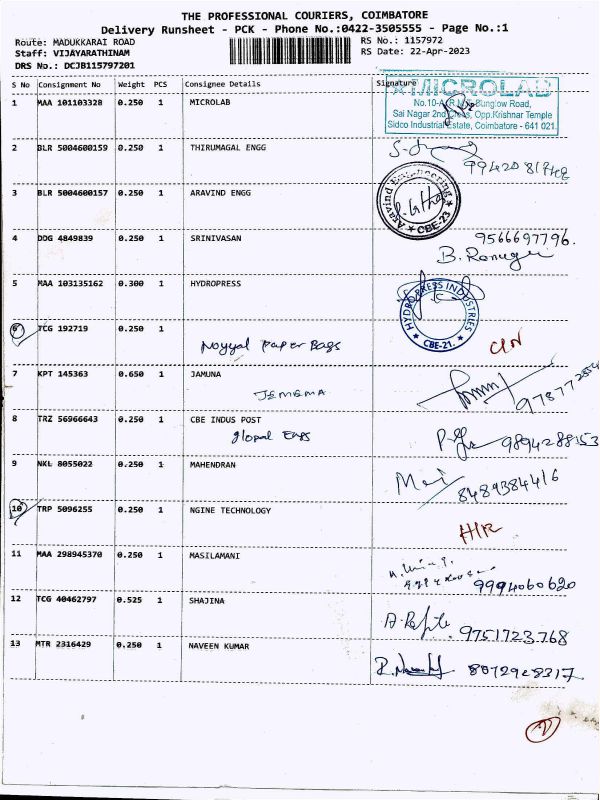 THE PROFESSIONAL COURIERS, COIMBATORE
Delivery Runsheet - PCK - Phone No.:0422-3505555 - Page No.:1
Route: MADUKKARAI ROAD RS No.: 1157972
Staff: VIJAYARATHINAM RS Date: 22-Apr-2023
DRS No.: DCJB115797201
S No Consignment No Weight PCS Consignee Details Signature
1 MAA 101103328 0.250 1 MICROLAB
MICROLAB
Sai Nagar 2nd Cross, Opp.Krishnar Temple
Sidco Industrial Estate, Coimbatore - 641 021.
2 BLR 5004600159 0.250 1 THIRUMAGAL ENGG
3 BLR 5004600157 0.250 1 ARAVIND ENGG
Aravind Engineering
CBE-23
4 DDG 4849839 0.250 1 SRINIVASAN 9566697796.
5 MAA 103135162 0.300 1 HYDROPRESS
HYDROPRESS INDUSTRIES
CBE-21.
6 TCG 192719 0.250 1
Noyyal Paper Bags
7 KPT 145363 0.650 1 JAMUNA
JEMEMA
8 TRZ 56966643 0.250 1 CBE INDUS POST
9894288153
9 NKL 8055022 0.250 1 MAHENDRAN
8489384416
10 TRP 5096255 0.250 1 NGINE TECHNOLOGY
11 MAA 298945370 0.250 1 MASILAMANI
9994060620
12 TCG 40462797 0.525 1 SHAJINA
9751723768
13 MTR 2316429 0.250 1 NAVEEN KUMAR
8072928317